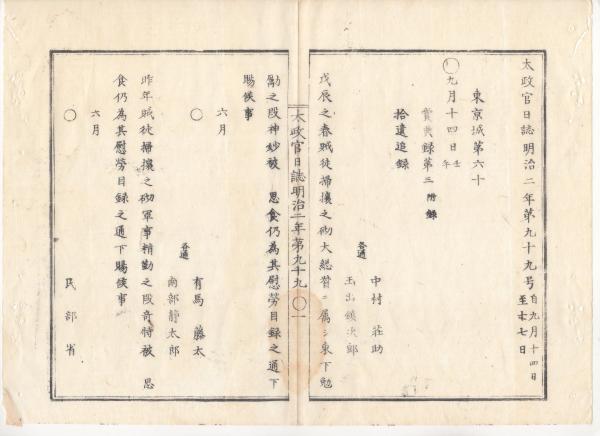 太政官日誌明治二年第九十九号 自九月十四日 至十七日
東京城第六十
〇九月十四日 壬午
賞典録第三 附録
拾遺追録
中村 荘助
各通 玉出鎮次郎
戊辰之春賊徒掃攘之砌大総督ニ属シ東下勉
太政官日誌明治二年第九十九 〇一
勵之段神妙被 思食仍為其慰勞目録之通下
賜候事
六月
〇
有馬 藤太
各通 南部静太郎
昨年賊徒掃攘之砌軍事精勤之段奇特被 思
食仍為其慰勞目録之通下賜候事
六月
〇
民部省